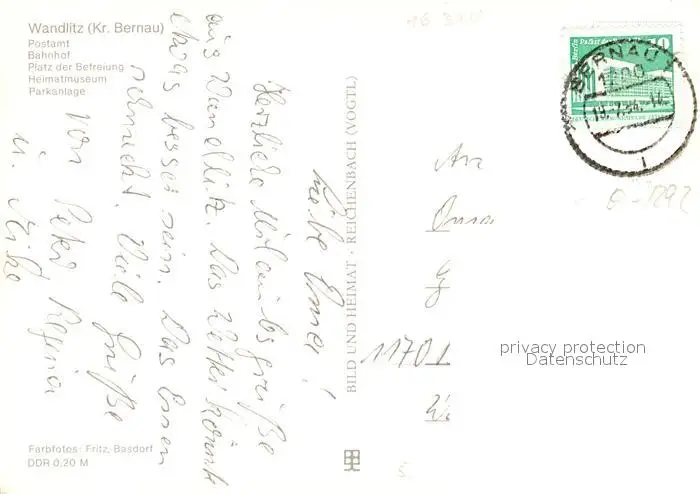 Wandlitz (Kr. Bernau)
Postamt
Bahnhof
Platz der Befreiung
Heimatmuseum
Parkanlage
Liebe Oma!
Herzliche Urlaubsgrüße
aus Wandlitz. Das Wetter könnte
etwas besser sein. Das Essen
schmeckt. Viele Grüße
von Peter Regina
u. Mike
Farbfotos: Fritz, Basdorf
DDR 0,20 M
BILD UND HEIMAT · REICHENBACH (VOGTL)
BERNAU
10
An
Oma
1170 1
privacy protection
Datenschutz